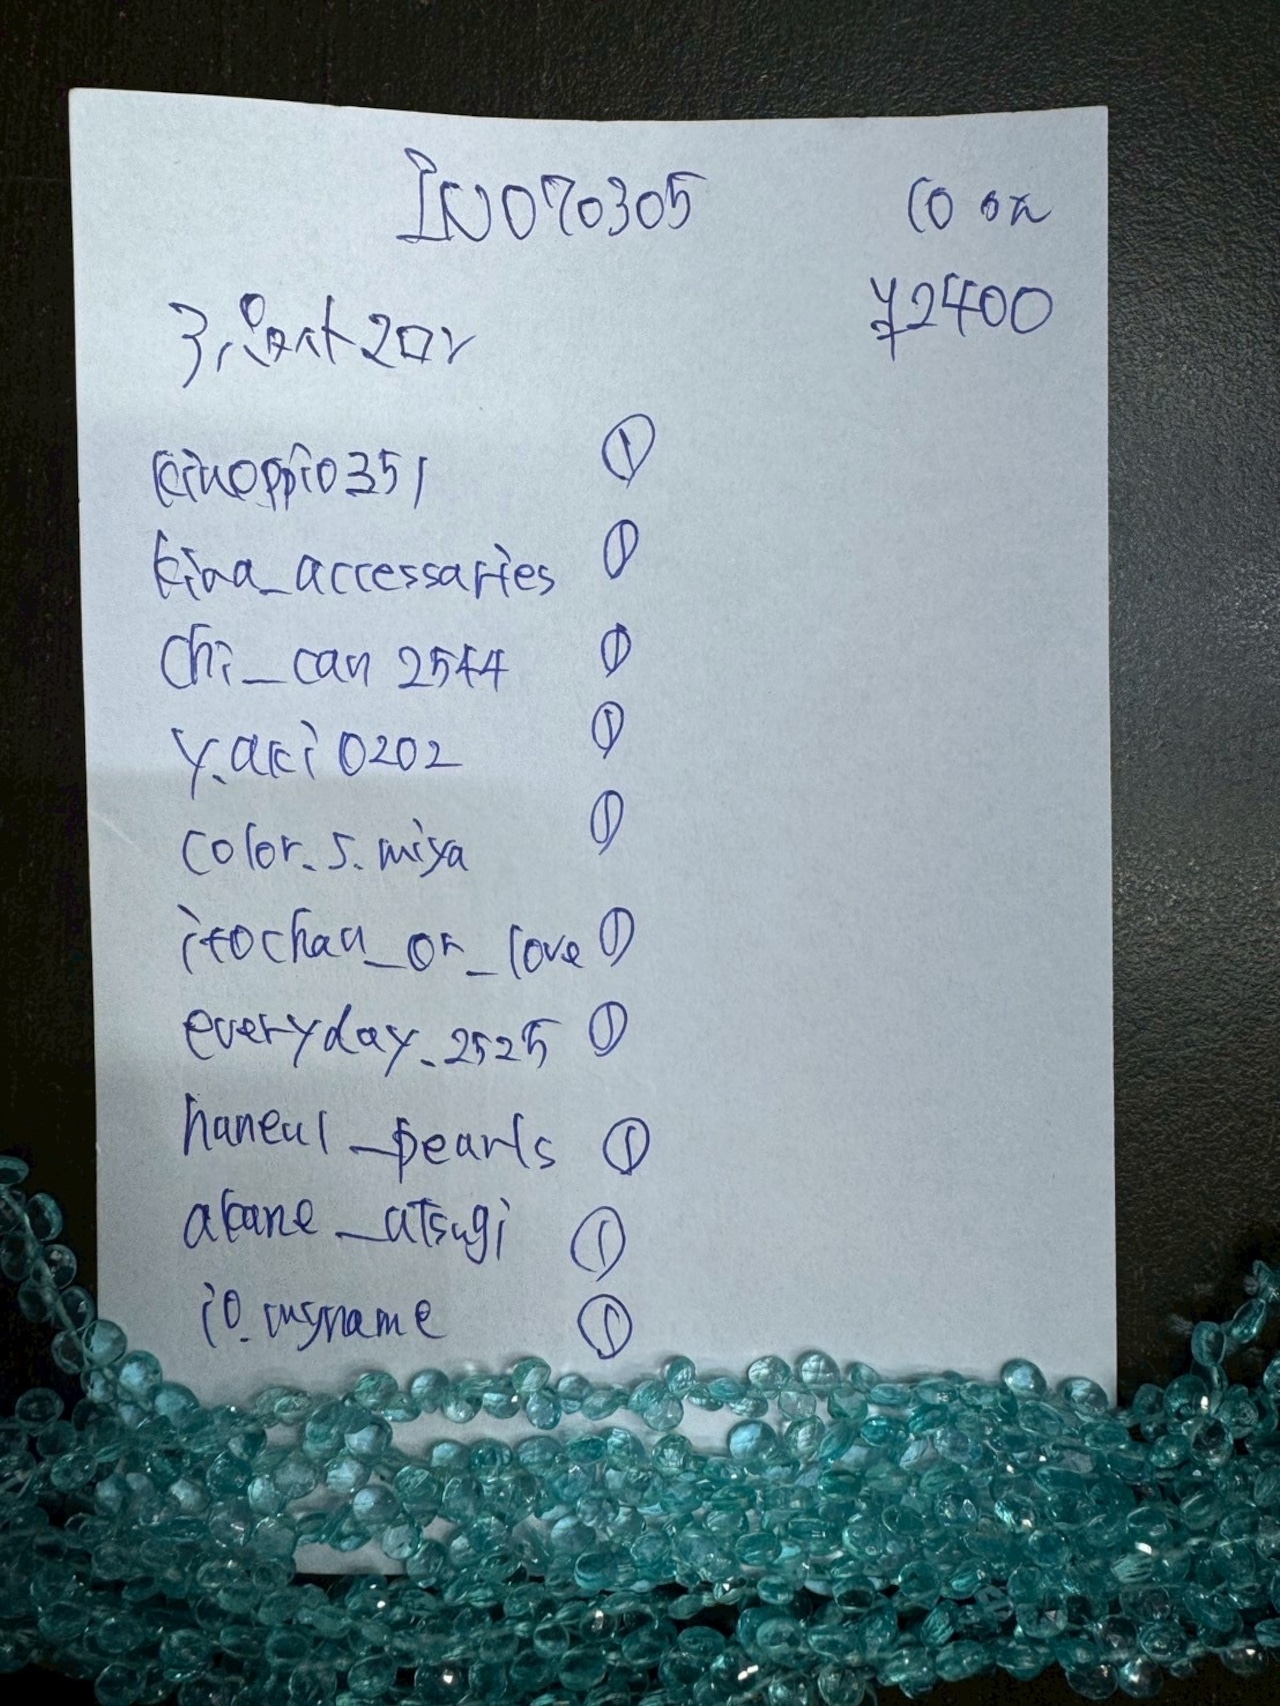 IN070305
¥2400
kinoppio351 ①
kina_accessaries ①
chi_can2544 ①
y.aki0202 ①
color.s.miya ①
itochan_on_love ①
everyday.2525 ①
haneul_pearls ①
akane_atsugi ①
io.myname ①